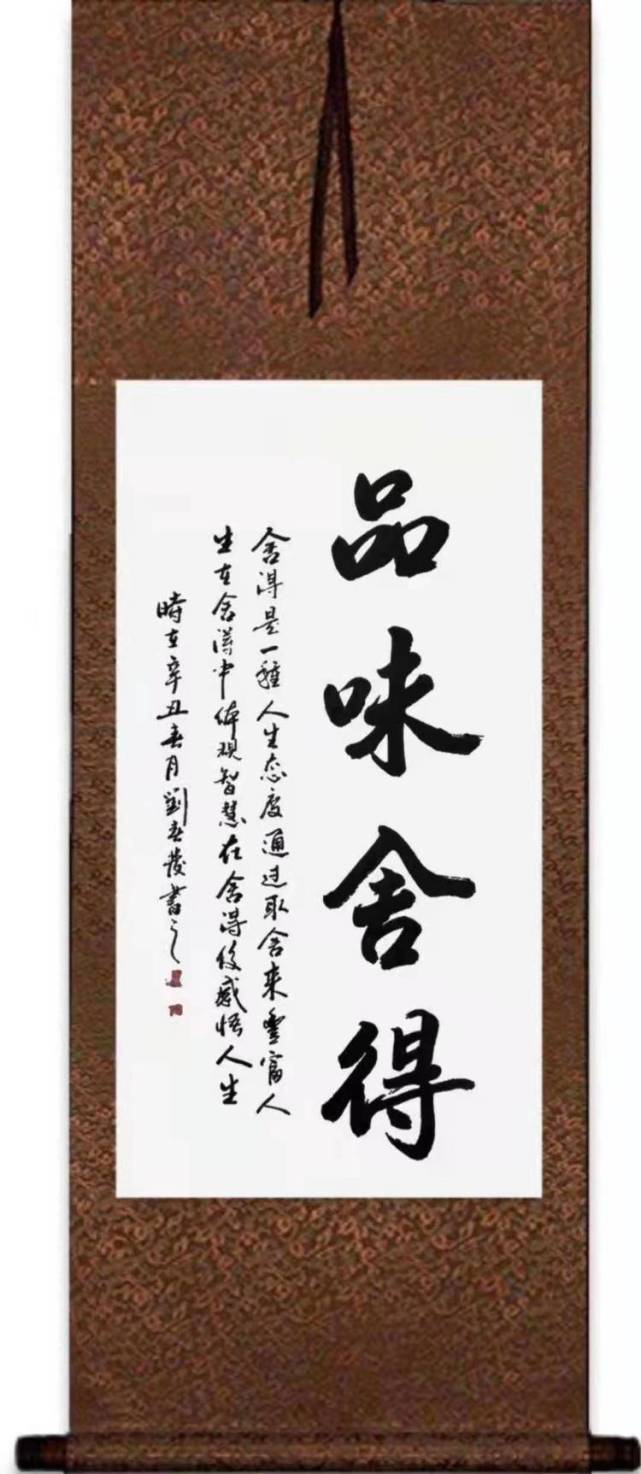 品味舍得
舍得是一種人生态度通过取舍来豐富人
生在舍得中体现智慧在舍得后感悟人生
時在辛丑春月劉春茂書之